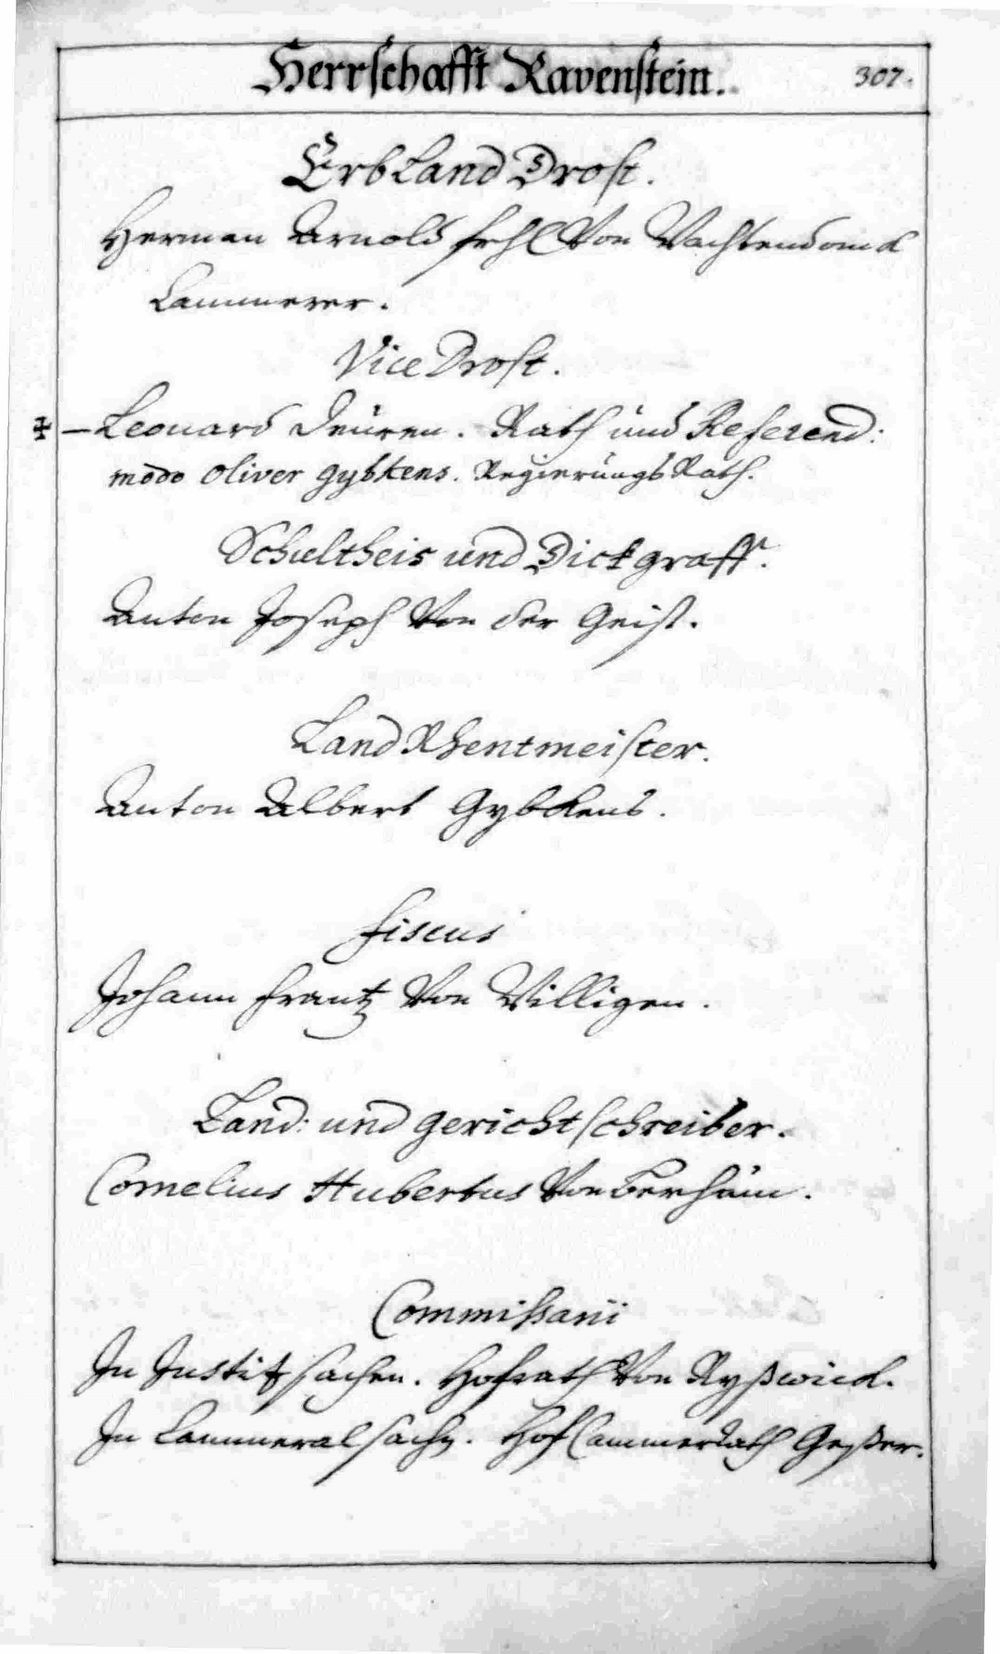 Herrschafft Ravenstein. 307.
Erb Land Drost.
Herman Arnold frh Von Wachtendonck
Cammerer.
Vice Drost.
Leonard Deüren. Rath und Referend:
modo Oliver Gybkens. Regierüngs Rath.
Schultheis und Dickgraff.
Anton Joseph Von der Geist.
Land Rhentmeister.
Anton Albert Gybkens.
Fiscus
Johann Frantz Von Willigen.
Land: und gerichtschreiber.
Cornelius Hubertus Von
Commissarii
In Justitzsachen. Hofrath Von Ryßwick.
In Cammeralsachen. Hof Cammerrath